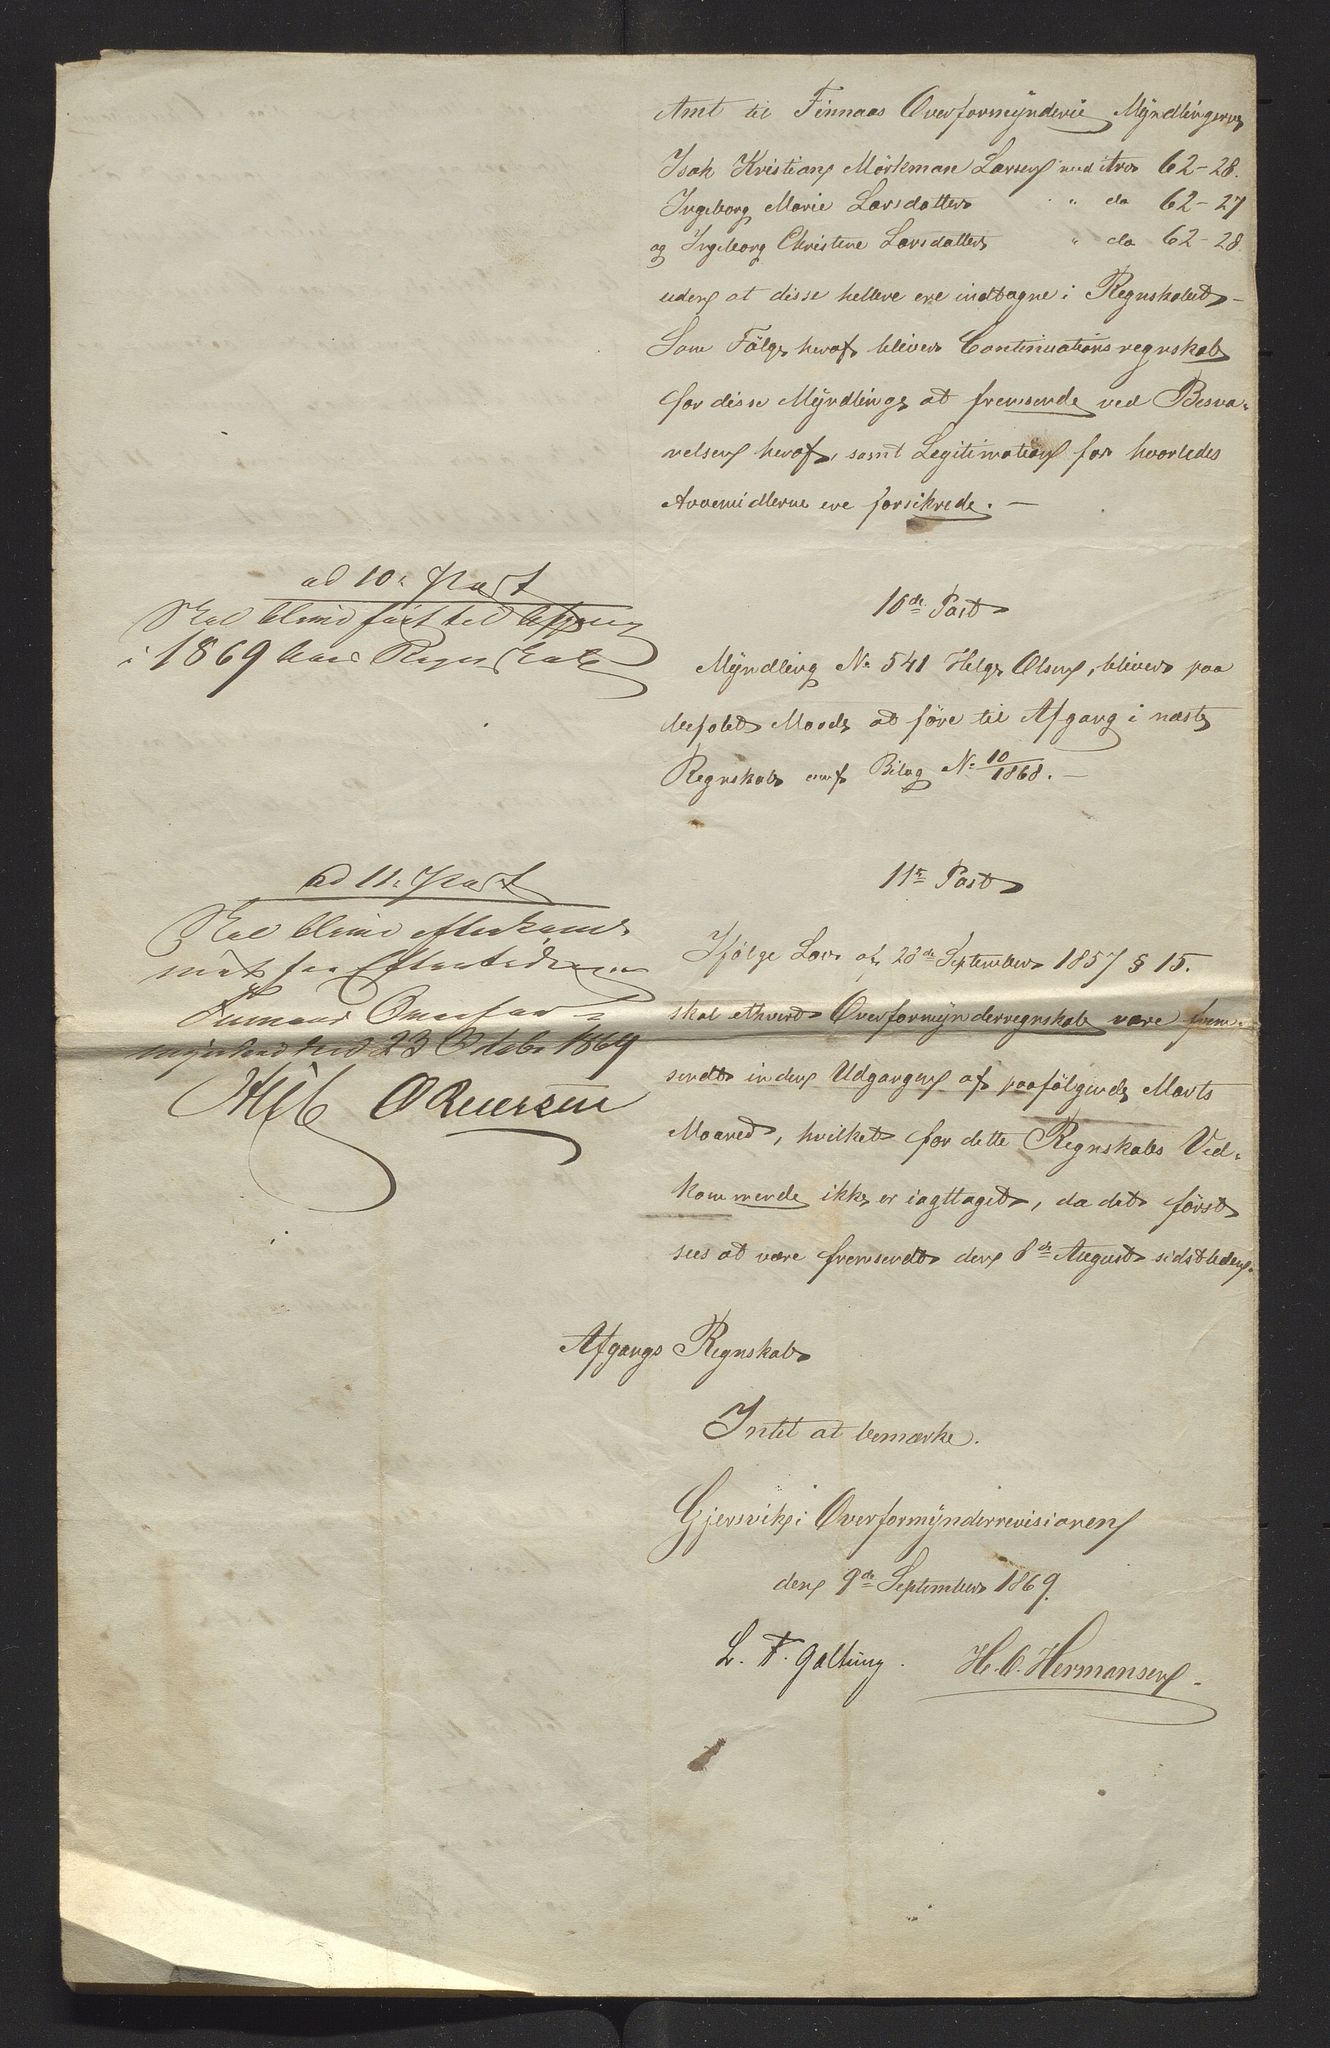 Amt til Finnaas Overformynderie Myndlingerne
Isak Kristian Mörkman Larsen med Arv 62-28.
Ingeborg Marie Larsdatter " do 62-27
og Ingeborg Christine Larsdatter " do 62-28.
uden at disse hellere ere indtagne i Regnskabet -
Som Fölge heraf bliver Continuationsregnskab
for disse Myndlinge at fremsende ved Besva-
relsen heraf, samt Legitimation for hvorledes
Arvemidlerne ere forsikrede. -
ad 10. Post
Skal blive fört til Afgang
i 1869 Aars Regnskab
10de Post
Myndling No 541 Helge Olsen, bliver paa
befalet Maade at före til Afgang i næste
Regnskab cnf Bilag No 10/1868. -
ad 11. Post
Skal blive efterkom-
met for Eftertiden
Finnaas Overfor-
mynderi den 23 Octobr 1869
O Reiersen
11te Post
Ifölge Lov af 28de September 1857 § 15.
skal ethvert Overformynderregnskab være frem-
sendt inden Udgangen af paafölgende Marts
Maaned, hvilket for dette Regnskabs Ved-
kommende ikke er iagttaget, da det först
sees at være fremsendt den 8de August sidstleden.
Afgangs Regnskab
Intet at bemærke.
Gjersvik i Overformynderrevisionen
den 9de September 1869.
L. F. Galtung. H. O. Hermansen.